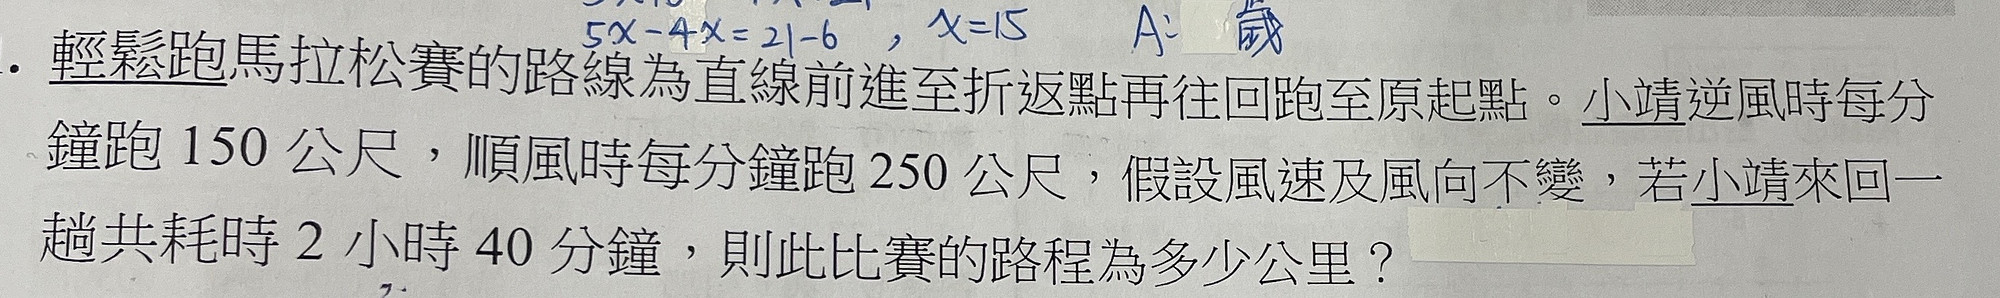 5x-4x=21-6 , x=15 A: 歲
. 輕鬆跑馬拉松賽的路線為直線前進至折返點再往回跑至原起點。小靖逆風時每分
鐘跑 150 公尺，順風時每分鐘跑 250 公尺，假設風速及風向不變，若小靖來回一
趟共耗時 2 小時 40 分鐘，則此比賽的路程為多少公里？